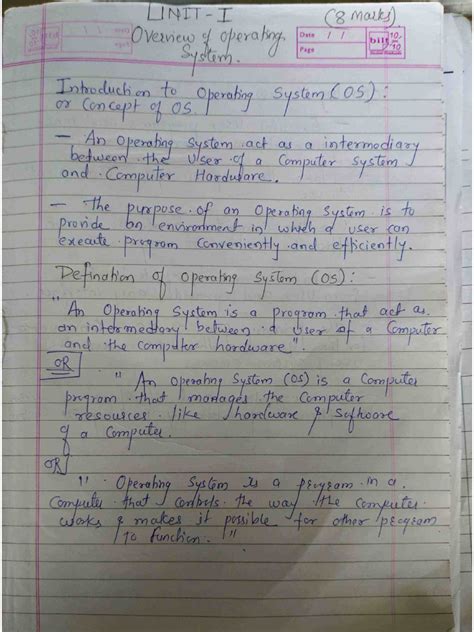 UNIT-I
(8 Marks)
Overview of operating
System.
Date / /
Page
Introduction to Operating System (OS) :
or Concept of OS
— An Operating System act as a intermediary
between the User of a Computer System
and Computer Hardware.
— The purpose of an Operating System is to
provide an environment in which a user can
execute program conveniently and efficiently.
Defination of Operating System (OS) :-
" An Operating System is a program that act as
an intermedory between a user of a Computer
and the computer hardware ".
OR
" An Operating System (OS) is a Computer
program that manages the Computer
resources like hardware & Software
of a Computer.
OR
" Operating System is a program in a
Computer that controls the way the Computer
works & makes it possible for other program
to function. "